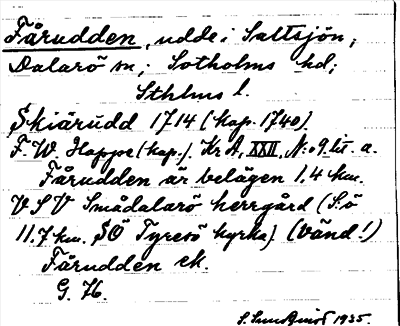 Fårudden, udde i Saltsjön,
Dalarö sn; Sotholms hd;
Sthlms l.
Skiärudd 1714 (kop. 1740).
F. W. Hoppe (kop.). Kr A, XXII, N:o 9 lit. a.
Fårudden är belägen 1.4 km.
VSV Smådalarö herrgård (S:ö
11.7 km. SÖ Tyresö kyrka). (Vänd!)
Fårudden ek.
G. 76.
S. Sundquist 1935.